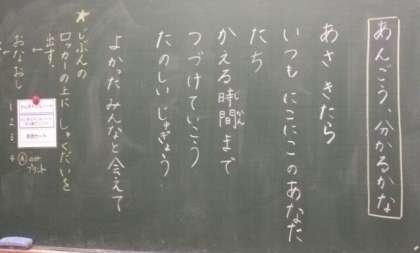 あんごう 分かるかな
あさ きたら
いつも にこにこのあなた
たち
かえる時間まで
じかん
つづけていこう
たのしい じゅぎょう
よかった みんなと会えて
★じぶんの
ロッカーの上に しゅくだいを
出す。
おなおし
1
2
3
4 Ⓐ
プリント